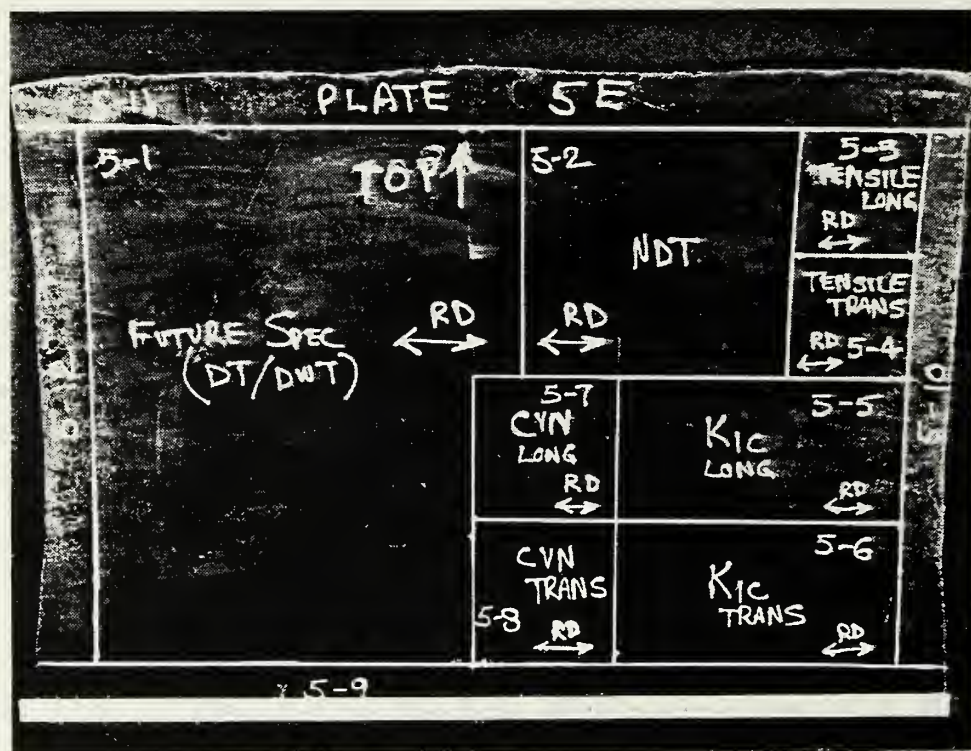 5-11 PLATE 5E
5-1
TOP
FUTURE SPEC
(DT/DWT)
RD
5-2
NDT
RD
5-3
TENSILE
LONG
RD
TENSILE
TRANS
RD 5-4
5-7
CVN
LONG
RD
5-5
KIC
LONG
RD
CVN
TRANS
5-8
RD
5-6
KIC
TRANS
RD
5-10
5-9